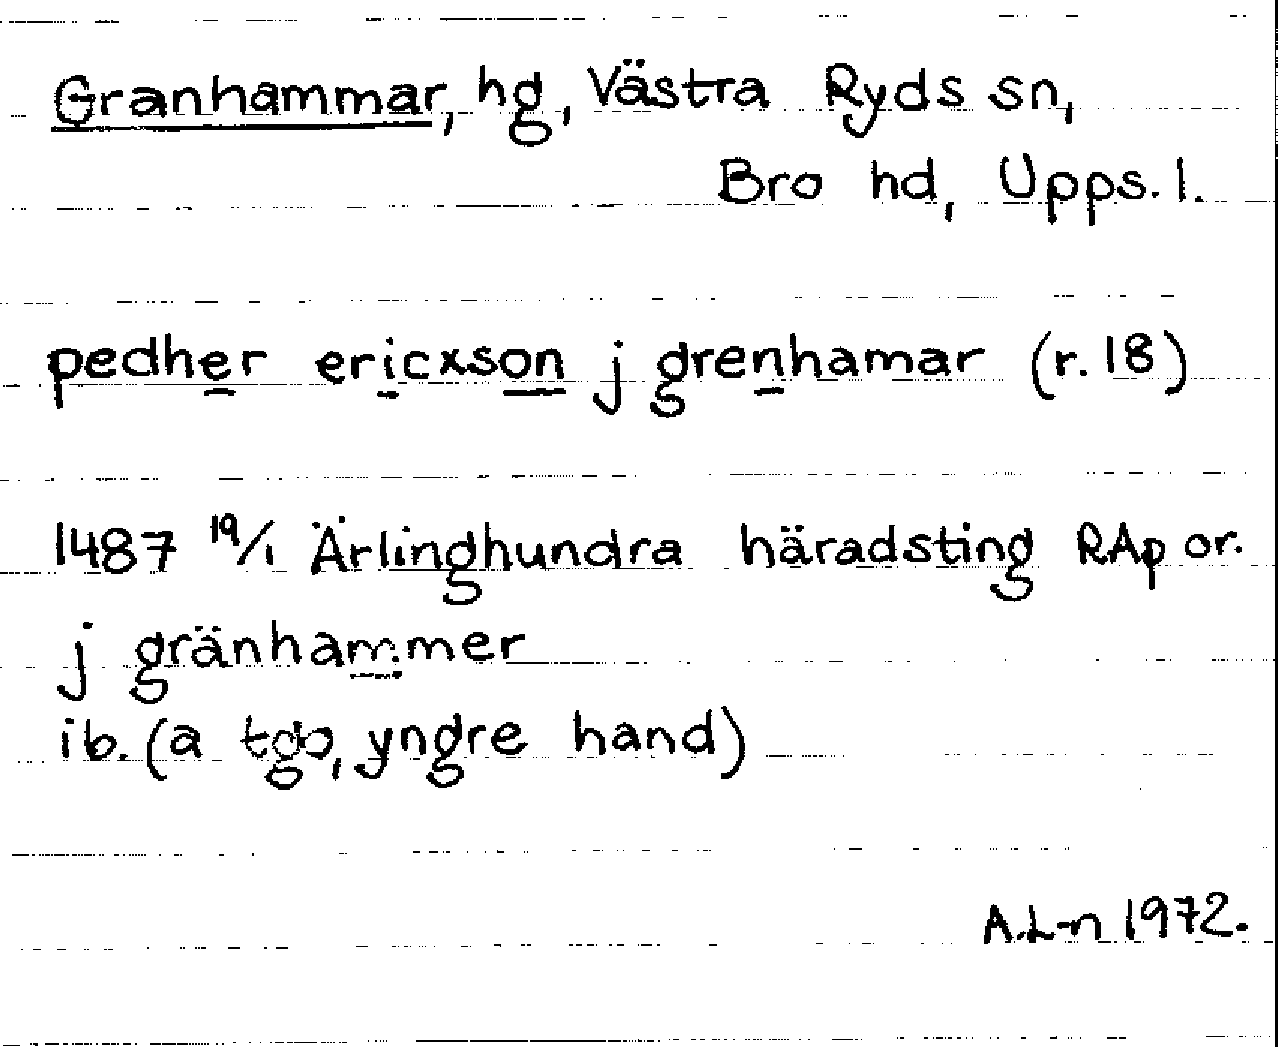 Granhammar, hg, Västra Ryds sn,
Bro hd, Upps. l.
pedher ericxson j grenhamar (r. 18)
1487 19/1 Ärlinghundra häradsting RAp or.
j gränhammer
ib. (a tgo, yngre hand)
A.L-n 1972.